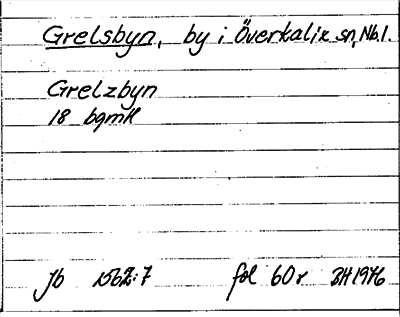 Grelsbyn, by i Överkalix sn, Nb.l.
Grelzbyn
18 bgmH
Jb 1562:7 fol 60r BH 1976